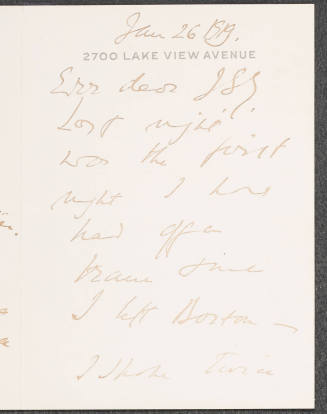 Jan 26 1919.
2700 LAKE VIEW AVENUE
Ever dear J S S,
Last night
was the first
night I have
had off a
train since
I left Boston —
I spoke Twice